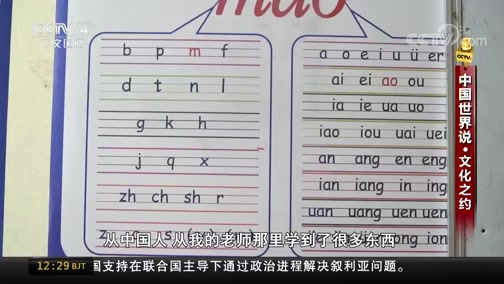 CCTV 4
中文国际
CCTV.com
mao
b p m f
d t n l
g k h
j q x
zh ch sh r
a o e i u ü er
ai ei ao ou
ia ie ua uo
iao iou uai uei
an ang en eng
ian iang in ing
uan uang uen uen
中国世界说·文化之约
从中国人 从我的老师那里学到了很多东西
12:29 BJT
国支持在联合国主导下通过政治进程解决叙利亚问题。